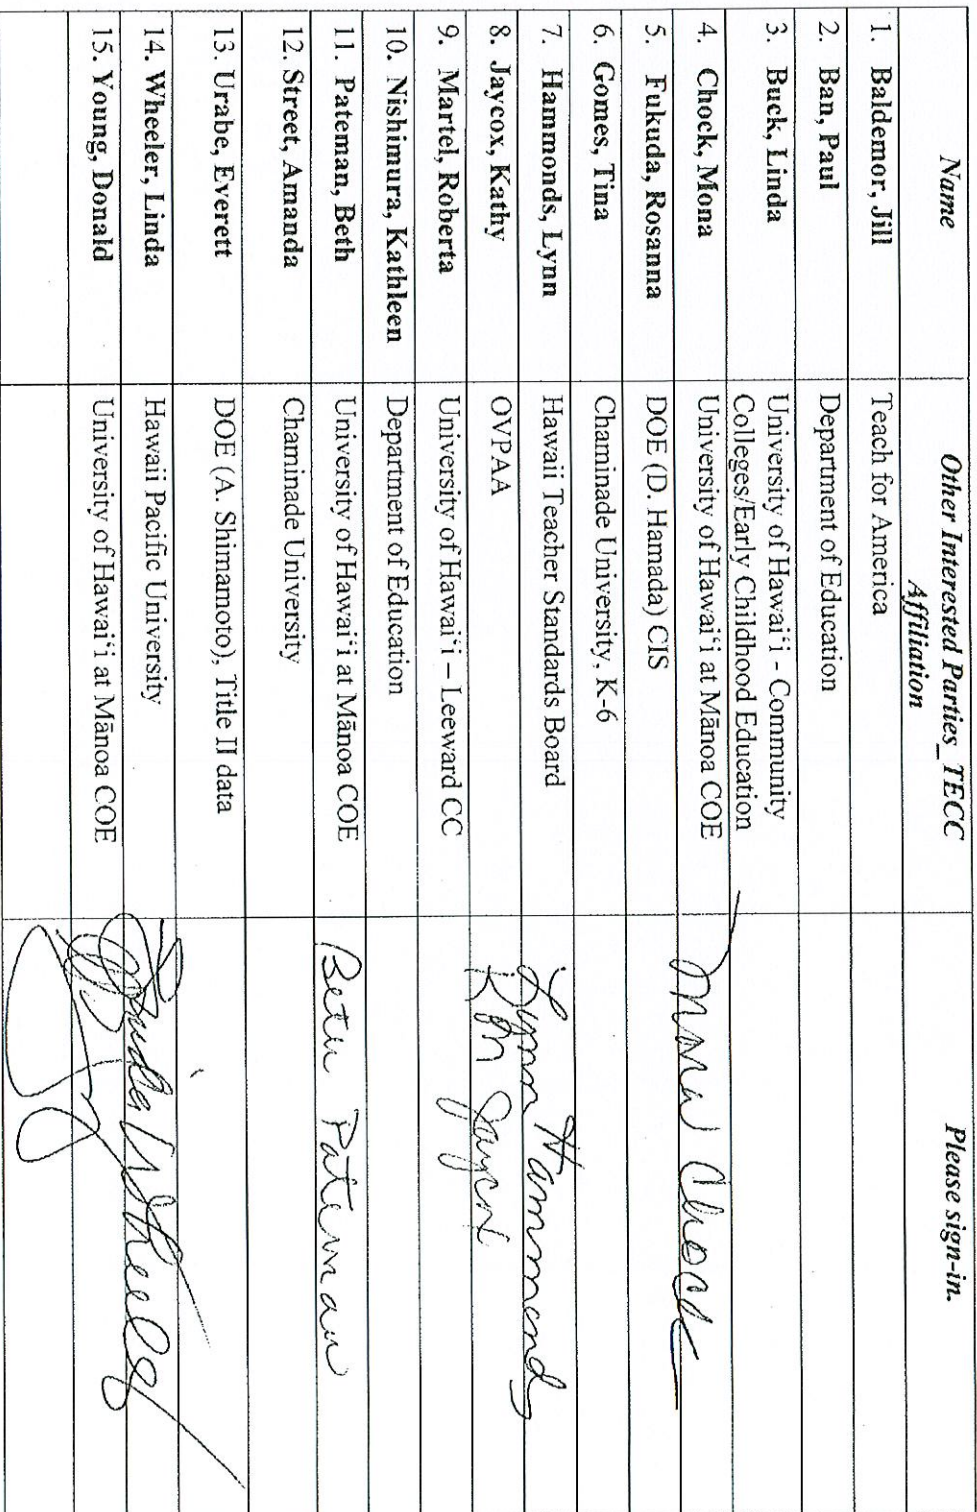 Name Other Interested Parties_TECC Please sign-in.
Affiliation
1. Baldemor, Jill Teach for America
2. Ban, Paul Department of Education
3. Buck, Linda University of Hawai‘i - Community
Colleges/Early Childhood Education
4. Chock, Mona University of Hawai‘i at Mānoa COE Mona Chock
5. Fukuda, Rosanna DOE (D. Hamada) CIS
6. Gomes, Tina Chaminade University, K-6
7. Hammonds, Lynn Hawaii Teacher Standards Board Lynn Hammonds
8. Jaycox, Kathy OVPAA
9. Martel, Roberta University of Hawai‘i – Leeward CC
10. Nishimura, Kathleen Department of Education
11. Pateman, Beth University of Hawai‘i at Mānoa COE Beth Pateman
12. Street, Amanda Chaminade University
13. Urabe, Everett DOE (A. Shimamoto), Title II data
14. Wheeler, Linda Hawaii Pacific University Linda Wheeler
15. Young, Donald University of Hawai‘i at Mānoa COE